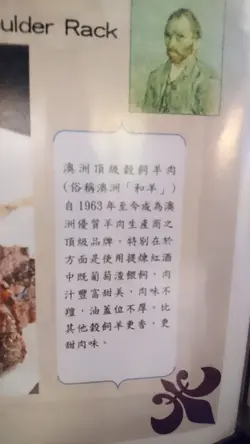 ulder Rack
澳洲頂級穀飼羊肉
(俗稱澳洲「和羊」)
自1963年至今成為澳
洲優質羊肉生產商之
頂級品牌。特別在於
方面是使用提煉紅酒
中既葡萄渣餵飼，肉
汁豐富甜美，肉味不
羶，油蓋位不厚。比
其他穀飼羊更香，更
甜肉味。